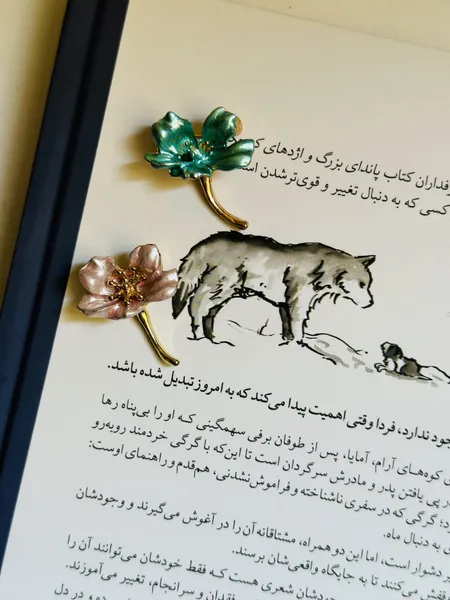 فداران کتاب پاندای بزرگ و اژدهای
کسی که به دنبال تغییر و قوی‌تر شدن
جود ندارد، فردا وقتی اهمیت پیدا می‌کند که به امروز تبدیل شده باشد.
کوه‌های آرام، آمایا، پس از طوفان برفی سهمگینی که او را بی‌پناه رها
در پی یافتن پدر و مادرش سرگردان است تا این‌که با گرگی خردمند روبه‌رو
گرگی که در سفری ناشناخته و فراموش‌نشدنی، هم‌قدم و راهنمای اوست:
به دنبال ماه.
دشوار است، اما این دو همراه، مشتاقانه آن را در آغوش می‌گیرند و وجودشان
می‌کنند تا به جایگاه واقعی‌شان برسند.
خودشان شعری هست که فقط خودشان می‌توانند آن را
فقدان و سرانجام، تغییر می‌آموزند.
و در دل